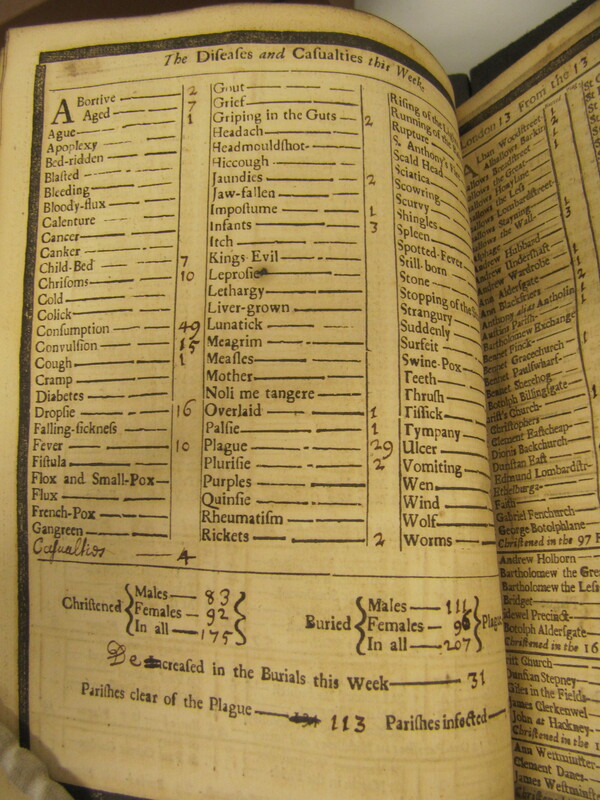 The Diſeaſes and Caſualties this Week.
Abortive 2
Aged 7
Ague 1
Apoplexy
Bed-ridden
Blaſted
Bleeding
Bloody-flux
Calenture
Cancer
Canker
Child-Bed 7
Chriſoms 10
Cold
Colick
Conſumption 49
Convulſion 15
Cough 1
Cramp
Diabetes
Dropſie 16
Falling-ſickneſs
Fever 10
Fiſtula
Flox and Small-Pox
Flux
French-Pox
Gangreen
Caſualties 4
Gout
Grief
Griping in the Guts 2
Headach
Headmouldſhot
Hiccough
Jaundies 2
Jaw-fallen
Impoſtume 1
Infants 3
Itch
Kings-Evil
Leproſie
Lethargy
Liver-grown
Lunatick
Meagrim
Meaſles
Mother
Noli me tangere
Overlaid 1
Palſie 1
Plague 29
Pluriſie 2
Purples
Quinſie
Rheumatiſm
Rickets 2
Riſing of the
Running of the
Rupture
S. Anthony's
Scald Head
Sciatica
Scowring
Scurvy
Shingles
Spleen
Spotted-Fever
Still-born
Stone
Stopping of the
Strangury
Suddenly
Surfeit
Swine-Pox
Teeth
Thruſh
Tiſſick
Tympany
Ulcer
Vomiting
Wen
Wind
Wolf
Worms
Chriſtened Males 83
Females 92
In all 175
Buried Males 111
Females 96
In all 207
Plague
Decreaſed in the Burials this Week 31
Pariſhes clear of the Plague 113 Pariſhes infected
London 13 From the 13
Alban Woodſtreet
Alhallows Barkin
Broadſtreet
Great
Honylane
Leſs
Lombardſtreet
Stayning
the Wall
Alphage
Andrew Hubbard
Andrew Underſhaft
Andrew Wardrobe
Ann Alderſgate
Ann Blackfriers
Antholin
Auſtins Pariſh
Bartholomew Exchange
Bennet Finck
Bennet Gracechurch
Bennet Paulſwharf
Bennet Sherehog
Botolph Billingſgate
Chriſt's Church
Chriſtophers
Clement Eaſtcheap
Dionis Backchurch
Dunſtan Eaſt
Edmund Lombardſtr
Ethelburga
Faith
Gabriel Fenchurch
George Botolphlane
Chriſtened in the 97
Andrew Holborn
Bartholomew the Gre
Bartholomew the Leſs
Bridget
Bridewel Precinct
Botolph Alderſgate
Chriſtened in the 16
Church
Dunſtan Stepney
Giles in the Fields
James Clerkenwel
John at Hackney
Chriſtened in the
Ann Weſtminſter
Clement Danes
James Weſtminſt